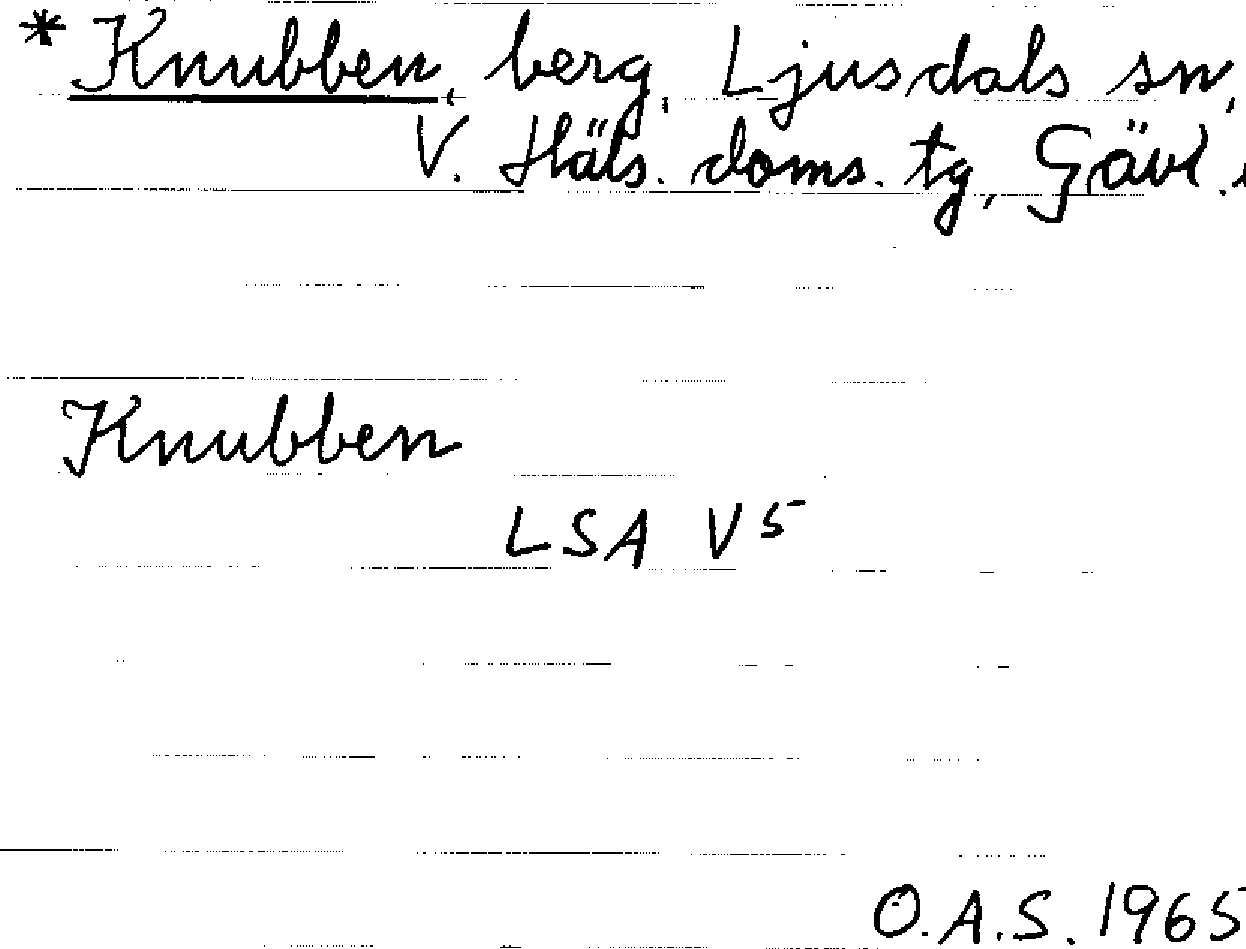 * Knubben, berg, Ljusdals sn,
V. Häls. doms. tg, Gävl.
Knubben
LSA V 5
O.A.S. 1965